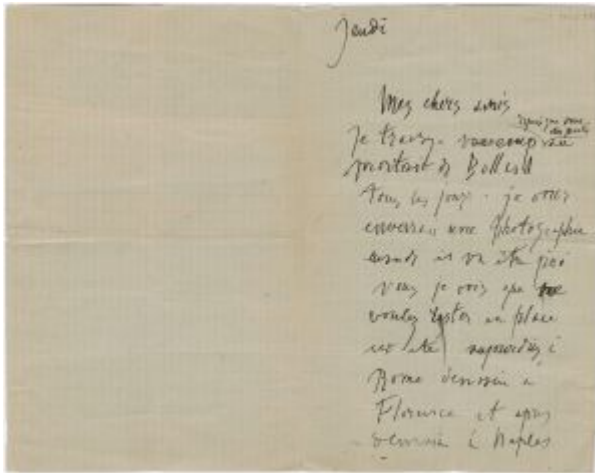 Jeudi
Mes chers amis
Je travaille beaucoup au
portrait de Vollard
tous les jours. je vous
enverrai une photographie
quand il va être fini
vous je vois que
voulez rester en place
cet été aujourd'hui à
Rome demain à
Florence et après
demain à Naples